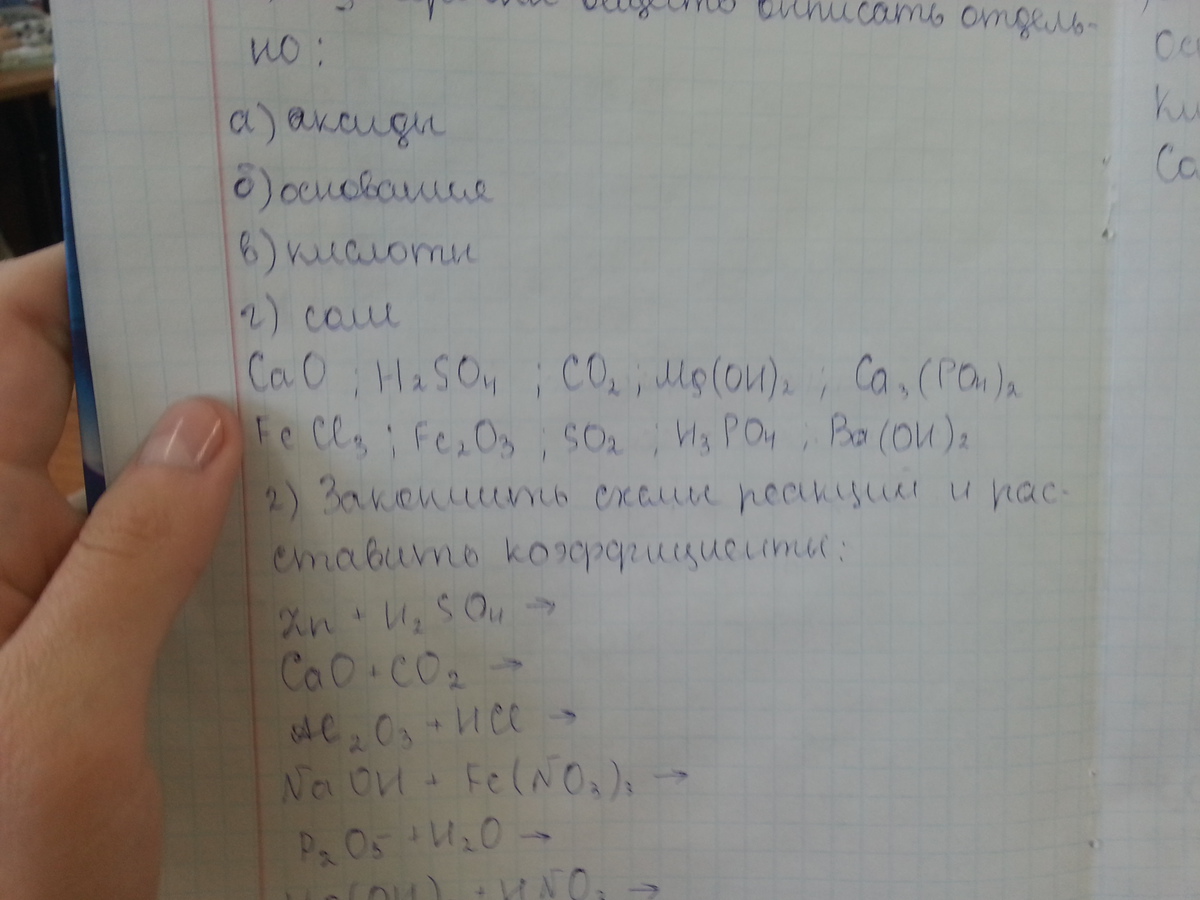 веществ выписать отдель-
но:
а) оксиды
б) основания
в) кислоты
г) соли
CaO ; H₂SO₄ ; CO₂ ; Mg(OH)₂ ; Ca₃(PO₄)₂
FeCl₃ ; Fe₂O₃ ; SO₂ ; H₃PO₄ ; Ba(OH)₂
2) Закончить схемы реакций и рас-
ставить коэффициенты:
Zn + H₂SO₄ →
CaO + CO₂ →
Al₂O₃ + HCl →
NaOH + Fe(NO₃)₃ →
P₂O₅ + H₂O →
(OH) + HNO₃ →
Ca